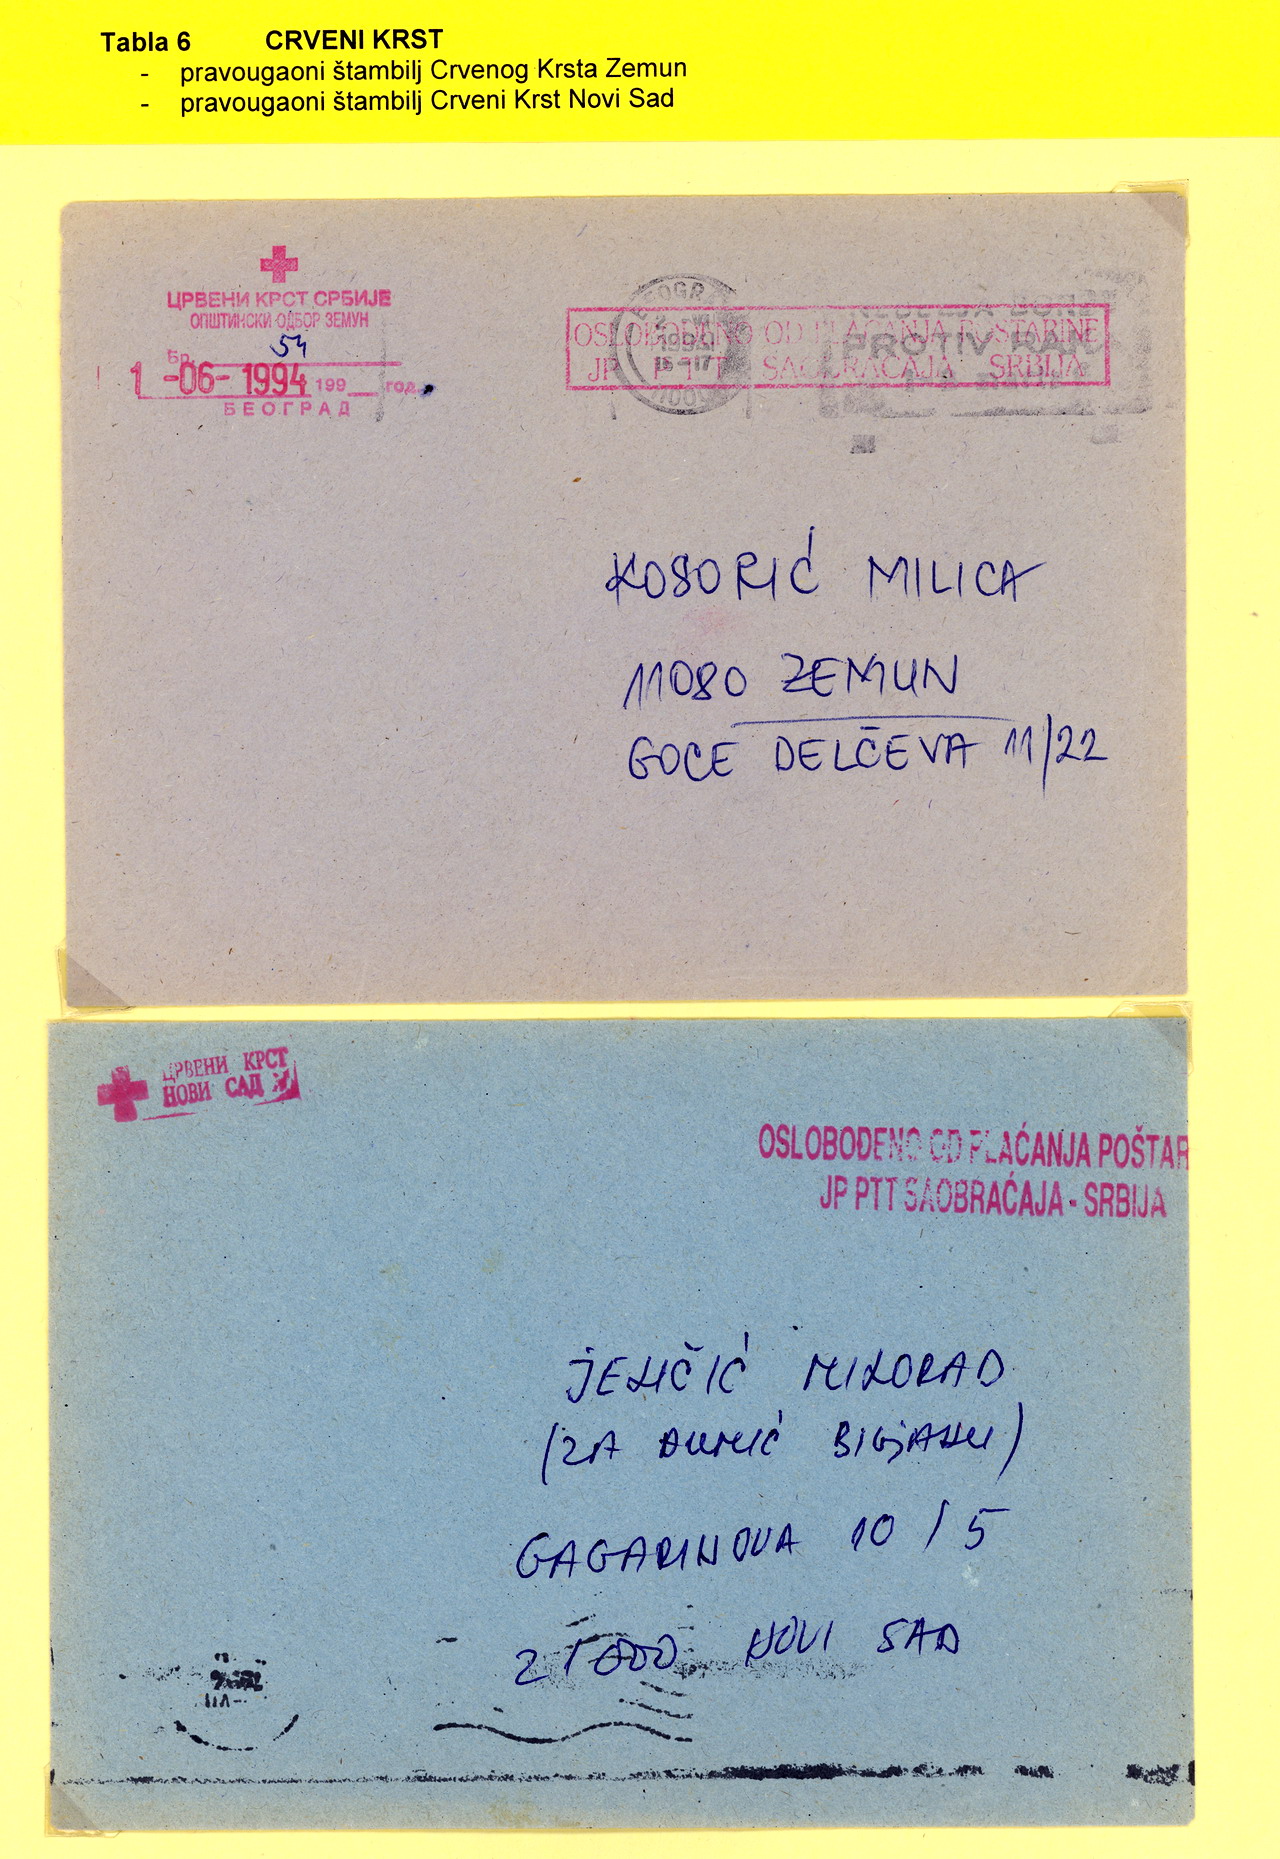 Tabla 6 CRVENI KRST
- pravougaoni štambilj Crvenog Krsta Zemun
- pravougaoni štambilj Crveni Krst Novi Sad
ЦРВЕНИ КРСТ СРБИЈЕ
ОПШТИНСКИ ОДБОР ЗЕМУН
Бр. 54
1 -06- 1994 199 год.
БЕОГРАД
OSLOBOĐENO OD PLAĆANJA POŠTARINE
JP PTT SAOBRAĆAJA SRBIJA
1994
16-17
PROTIV RAKA
KOSORIĆ MILICA
11080 ZEMUN
GOCE DELČEVA 11/22
ЦРВЕНИ КРСТ
НОВИ САД
OSLOBOĐENO OD PLAĆANJA POŠTAR
JP PTT SAOBRAĆAJA - SRBIJA
JELIČIĆ MILORAD
(ZA
GAGARINOVA 10 / 5
21000 NOVI SAD